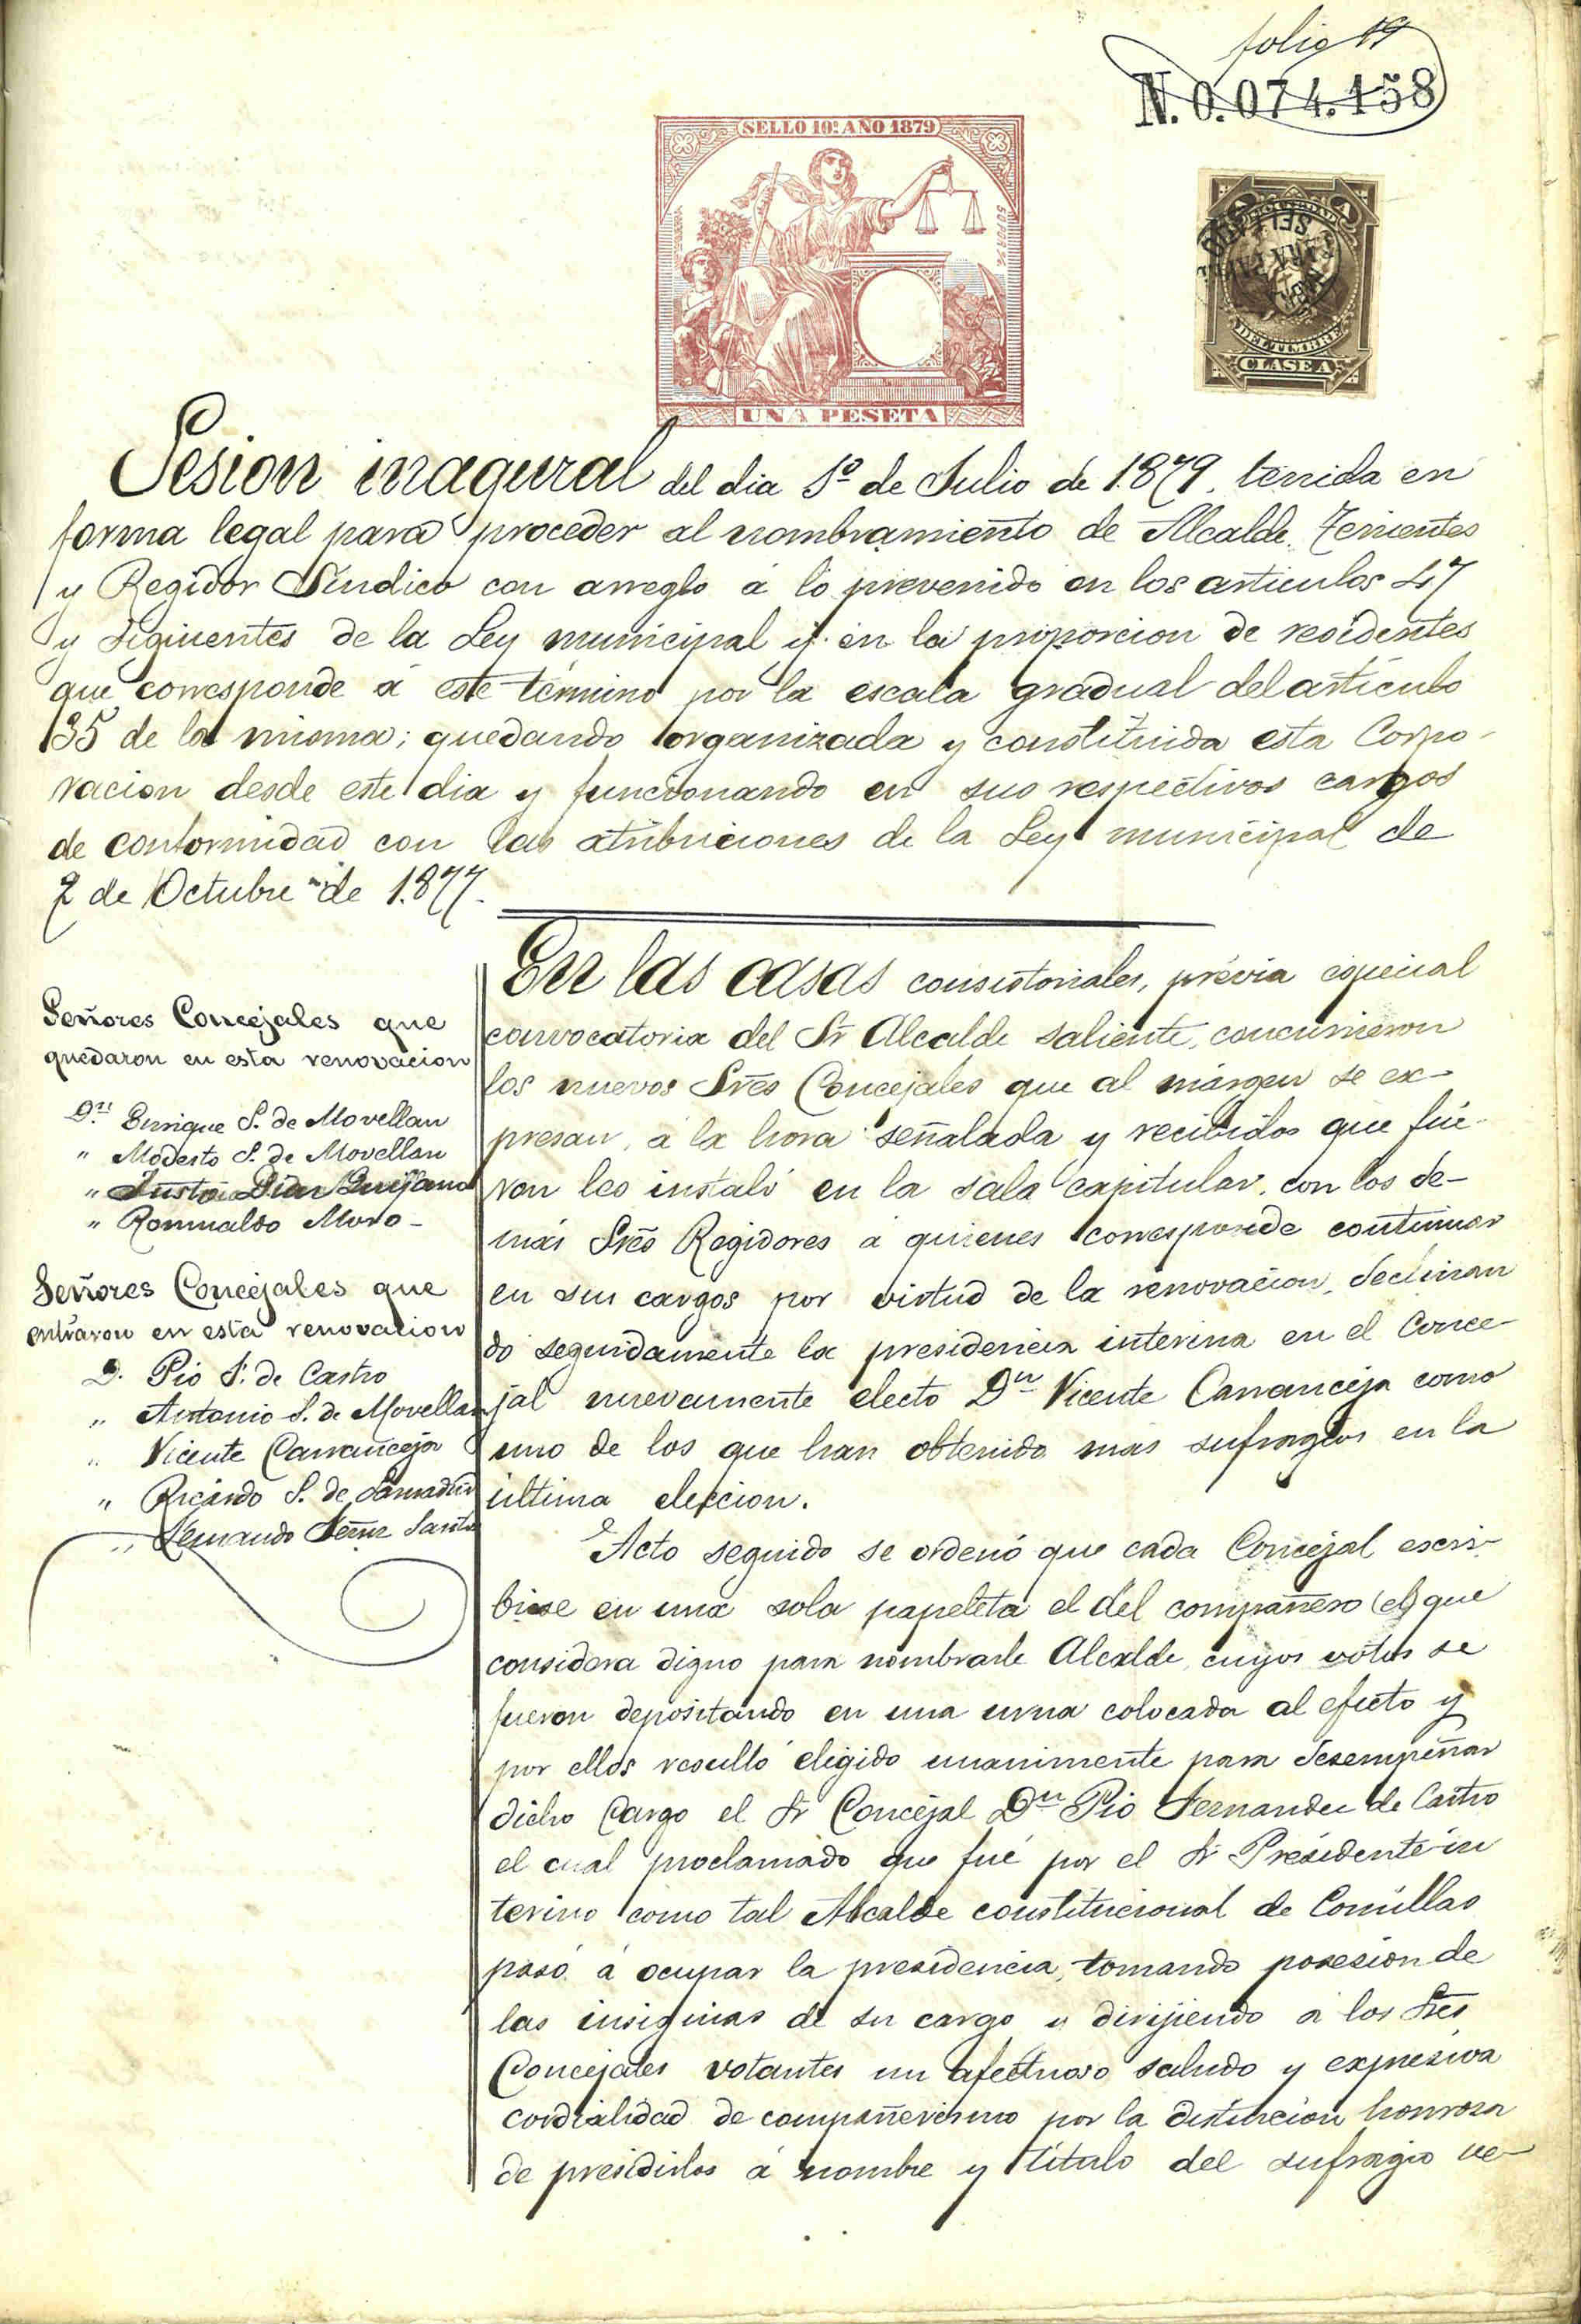 folio 19
N. 0.074.158
SELLO 10º AÑO 1879
UNA PESETA
DEL TIMBRE
CLASE A
Sesion inagural del dia 1º de Julio de 1879, tenida en
forma legal para proceder al nombramiento de Alcalde, Tenientes
y Regidor Síndico con arreglo á lo prevenido en los articulos 47
y siguientes de la Ley municipal y en la proporcion de residentes
que corresponde á este término por la escala gradual del artículo
35 de la misma; quedando organizada y constituida esta Corpo-
racion desde este dia y funcionando en sus respectivos cargos
de conformidad con las atribuciones de la Ley municipal de
2 de Octubre de 1.877.
Señores Concejales que
quedaron en esta renovacion
Dn. Enrique S. de Movellan
" Modesto S. de Movellan
" Justo Diaz Quijano
" Romualdo Moro-
Señores Concejales que
entraron en esta renovacion
D. Pio F. de Castro
" Antonio S. de Movellan
" Vicente Carranceja
" Ricardo S. de
" Fernando Santos
En las casas consistoriales, prévia especial
convocatoria del Sr Alcalde saliente, concurrieron
los nuevos Sres Concejales que al márgen se ex-
presan, á la hora señalada y recibidos que fue-
ron les instaló en la sala capitular, con los de-
más Sres Regidores á quienes corresponde continuar
en sus cargos por virtud de la renovacion, declinan
do seguidamente la presidencia interina en el Conce-
jal nuevamente electo Dn Vicente Carranceja como
uno de los que han obtenido mas sufragios en la
última eleccion.
Acto seguido se ordenó que cada Concejal escri-
biese en una sola papeleta el del compañero (el) que
considera digno para nombrarle Alcalde, cuyos votos se
fueron depositando en una urna colocada al efecto y
por ellos resultó eligido unanimente para desempeñar
dicho Cargo el Sr Concejal Dn Pio Fernandez de Castro
el cual proclamado que fué por el Sr Presidente in
terino como tal Alcalde constitucional de Comillas
pasó á ocupar la presidencia, tomando posesion de
las insignias de su cargo y dirijiendo á los Sres
Concejales votantes un afectuoso saludo y expresiva
cordialidad de compañerismo por la distincion honrosa
de presidirlos á nombre y título del sufragio ve-